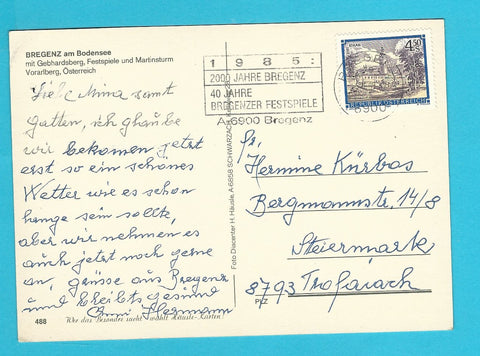 BREGENZ am Bodensee
mit Gebhardsberg, Festspiele und Martinsturm
Vorarlberg, Österreich
Liebe Mina samt
Gatten, ich glaube
wir bekomen jetzt
erst so ein schönes
Wetter wie es schon
lange sein sollte,
aber wir nehmen es
auch jetzt noch gerne
an, grüsse aus Bregenz
und bleibts gesund
Hermann
488 Wer das Besondre sucht - wählt Häusle-Karten!
Foto Discenter H. Häusle, A-6858 SCHWARZACH
1985:
2000 JAHRE BREGENZ
40 JAHRE
BREGENZER FESTSPIELE
A-6900 Bregenz
6900
4.50
REPUBLIK ÖSTERREICH
Fr.
Hermine Kürbos
Bergmannstr. 14/8
Steiermark
8793 Trofaiach